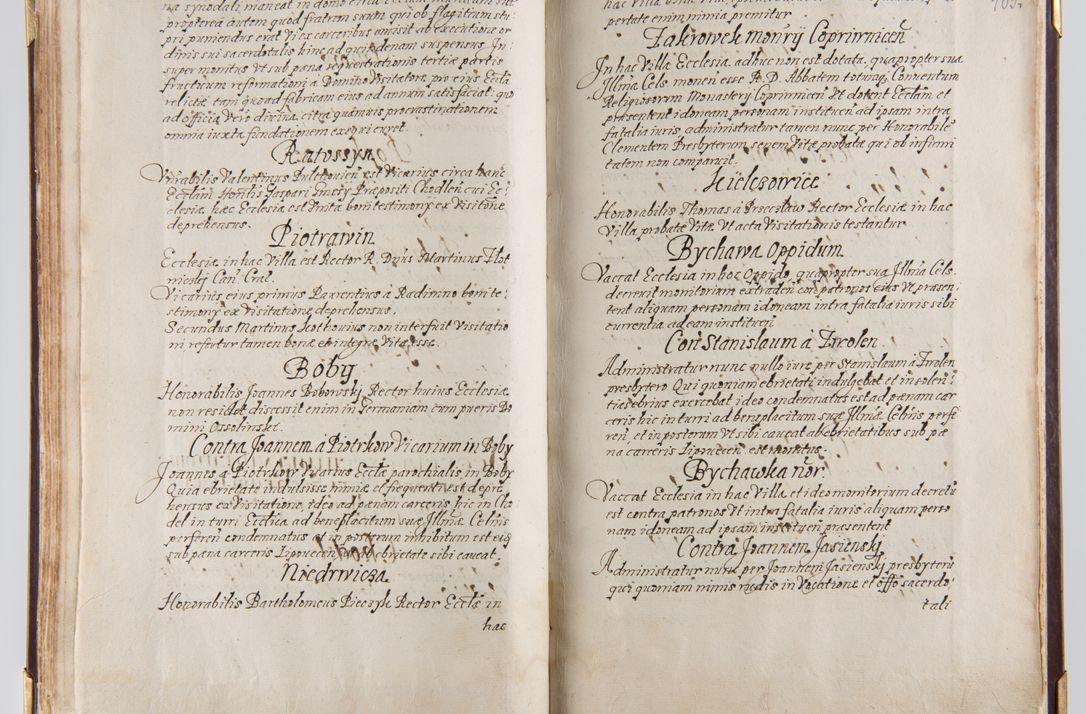 propterea autem quod fratrem suum qui ob flagitium stu:
pri puniendus erat vi ex carceribus amisit ab executione or
dinis sui sacerdotalis hinc ad quidenam suspensus. In:
super monitus ut sub pæna sequestrationis tertiæ partis
fructuum reformationi a Domino Visitatore pro eius Ecclã
relictæ tam quoad fabricam eius ad annum satisfaciat: quo
ad officia vero divina citra quamvis procrastinationem
omnia iuxta fundationem exequi curet.
Ratossyn
Venerabilis Valentinus est Vicarius circa hanc
Ecclãm Honblis Gaspari Præpositi Chodlen cui Ec:
clesiæ hæc Ecclesia est Unita boni testimonij ex Visitõne
deprehensus.
Piotrawin
Ecclesiæ in hac Villa est Rector R. Dnus Martinus
Can. Crac.
Vicarius eius primus Laurentius à Radimno boni te:
stimonij ex Visitatione deprehensus.
Secundus Martinus non interfuit Visitatio
ni, refertur tamen bonæ et integræ Vitæ esse.
Boby
Honorabilis Joannes Boborvskj Rector huius Ecclesiæ
non residet discessit enim in Germaniam cum pueris Do
mini Ossolinskj.
Contra Joannem à Piotrkow Vicarium in Boby
Joannes a Piotrkow Vicarius Ecclæ parochialis in Boby
Quia ebrietate indulsisse nimiæ et frequenti est depræ
hensus ex Visitatione, ideo ad pænam carceris hic in Cho
del in turri Ecclica ad beneplacitum suæ Illmæ Celnis
perferen condemnatus et in posterum inhibitum est eis
sub pæna carceris Lipovecen ab ebrietate sibi caveat.
Niedrwicza
Honorabilis Bartholomeus Pieczyk Rector Ecclæ in
hac
pertate enim nimia premitur
Zakrowek monrij Coprivnicen
In hac Villa Ecclesia adhuc non est dotata, quapropter sua
Illma Cels. moneri esse R. D. Abbatem totumq; Conventum
Religiosorum Monasterij Coprivnicen Ut dotent Ecclãm et
præsentent idoneam personam instituen ad ipsam intra
fatalia iuris, administratur tamen nunc per Honorabilẽ
Clementem Presbyterum senem Vitæ probatæ qui ob infirmi
tatem non comparuit.
Kielczowice
Honorabilis Thomas à Przeczlaw Rector Ecclesiæ in hac
Villa probatæ Vitæ Ut acta Visitationis testantur
Bychawa Oppidum
Vaccat Ecclesia in hoc Oppido, quapropter sua Illma Cels.
decrevit monitorium extraden con patronos eius Ut præsen
tent aliquam personam idoneam intra fatalia iuris sibi
currentia ad eam instituen
Con Stanislaum à Zwolen
Administratur nunc nullo iure per Stanislaum à Zwolen
presbytero Qui quoniam ebrietati indulgebat et insolen:
tias ebrius exercebat ideo condemnatus est ad pænam car
ceris hic in turri ad beneplacitum suæ Illmæ Celnis perfe
ren, et in posterum Ut sibi caveat ab ebrietatibus sub pæ
na carceris Lipvecen est monitus.
Bychawka nor.
Vaccat Ecclesia in hac Villa et ideo monitorium decretũ
est contra patronos Ut intra fatalia iuris aliquam perso
nam idoneam ad ipsam instituen præsentent
Contra Joannem Jasienskj
Administratur nunc per Joannem Jasienskj presbyterũ
qui quoniam nimis rudis in Vocatione et offo sacerdo:
tali